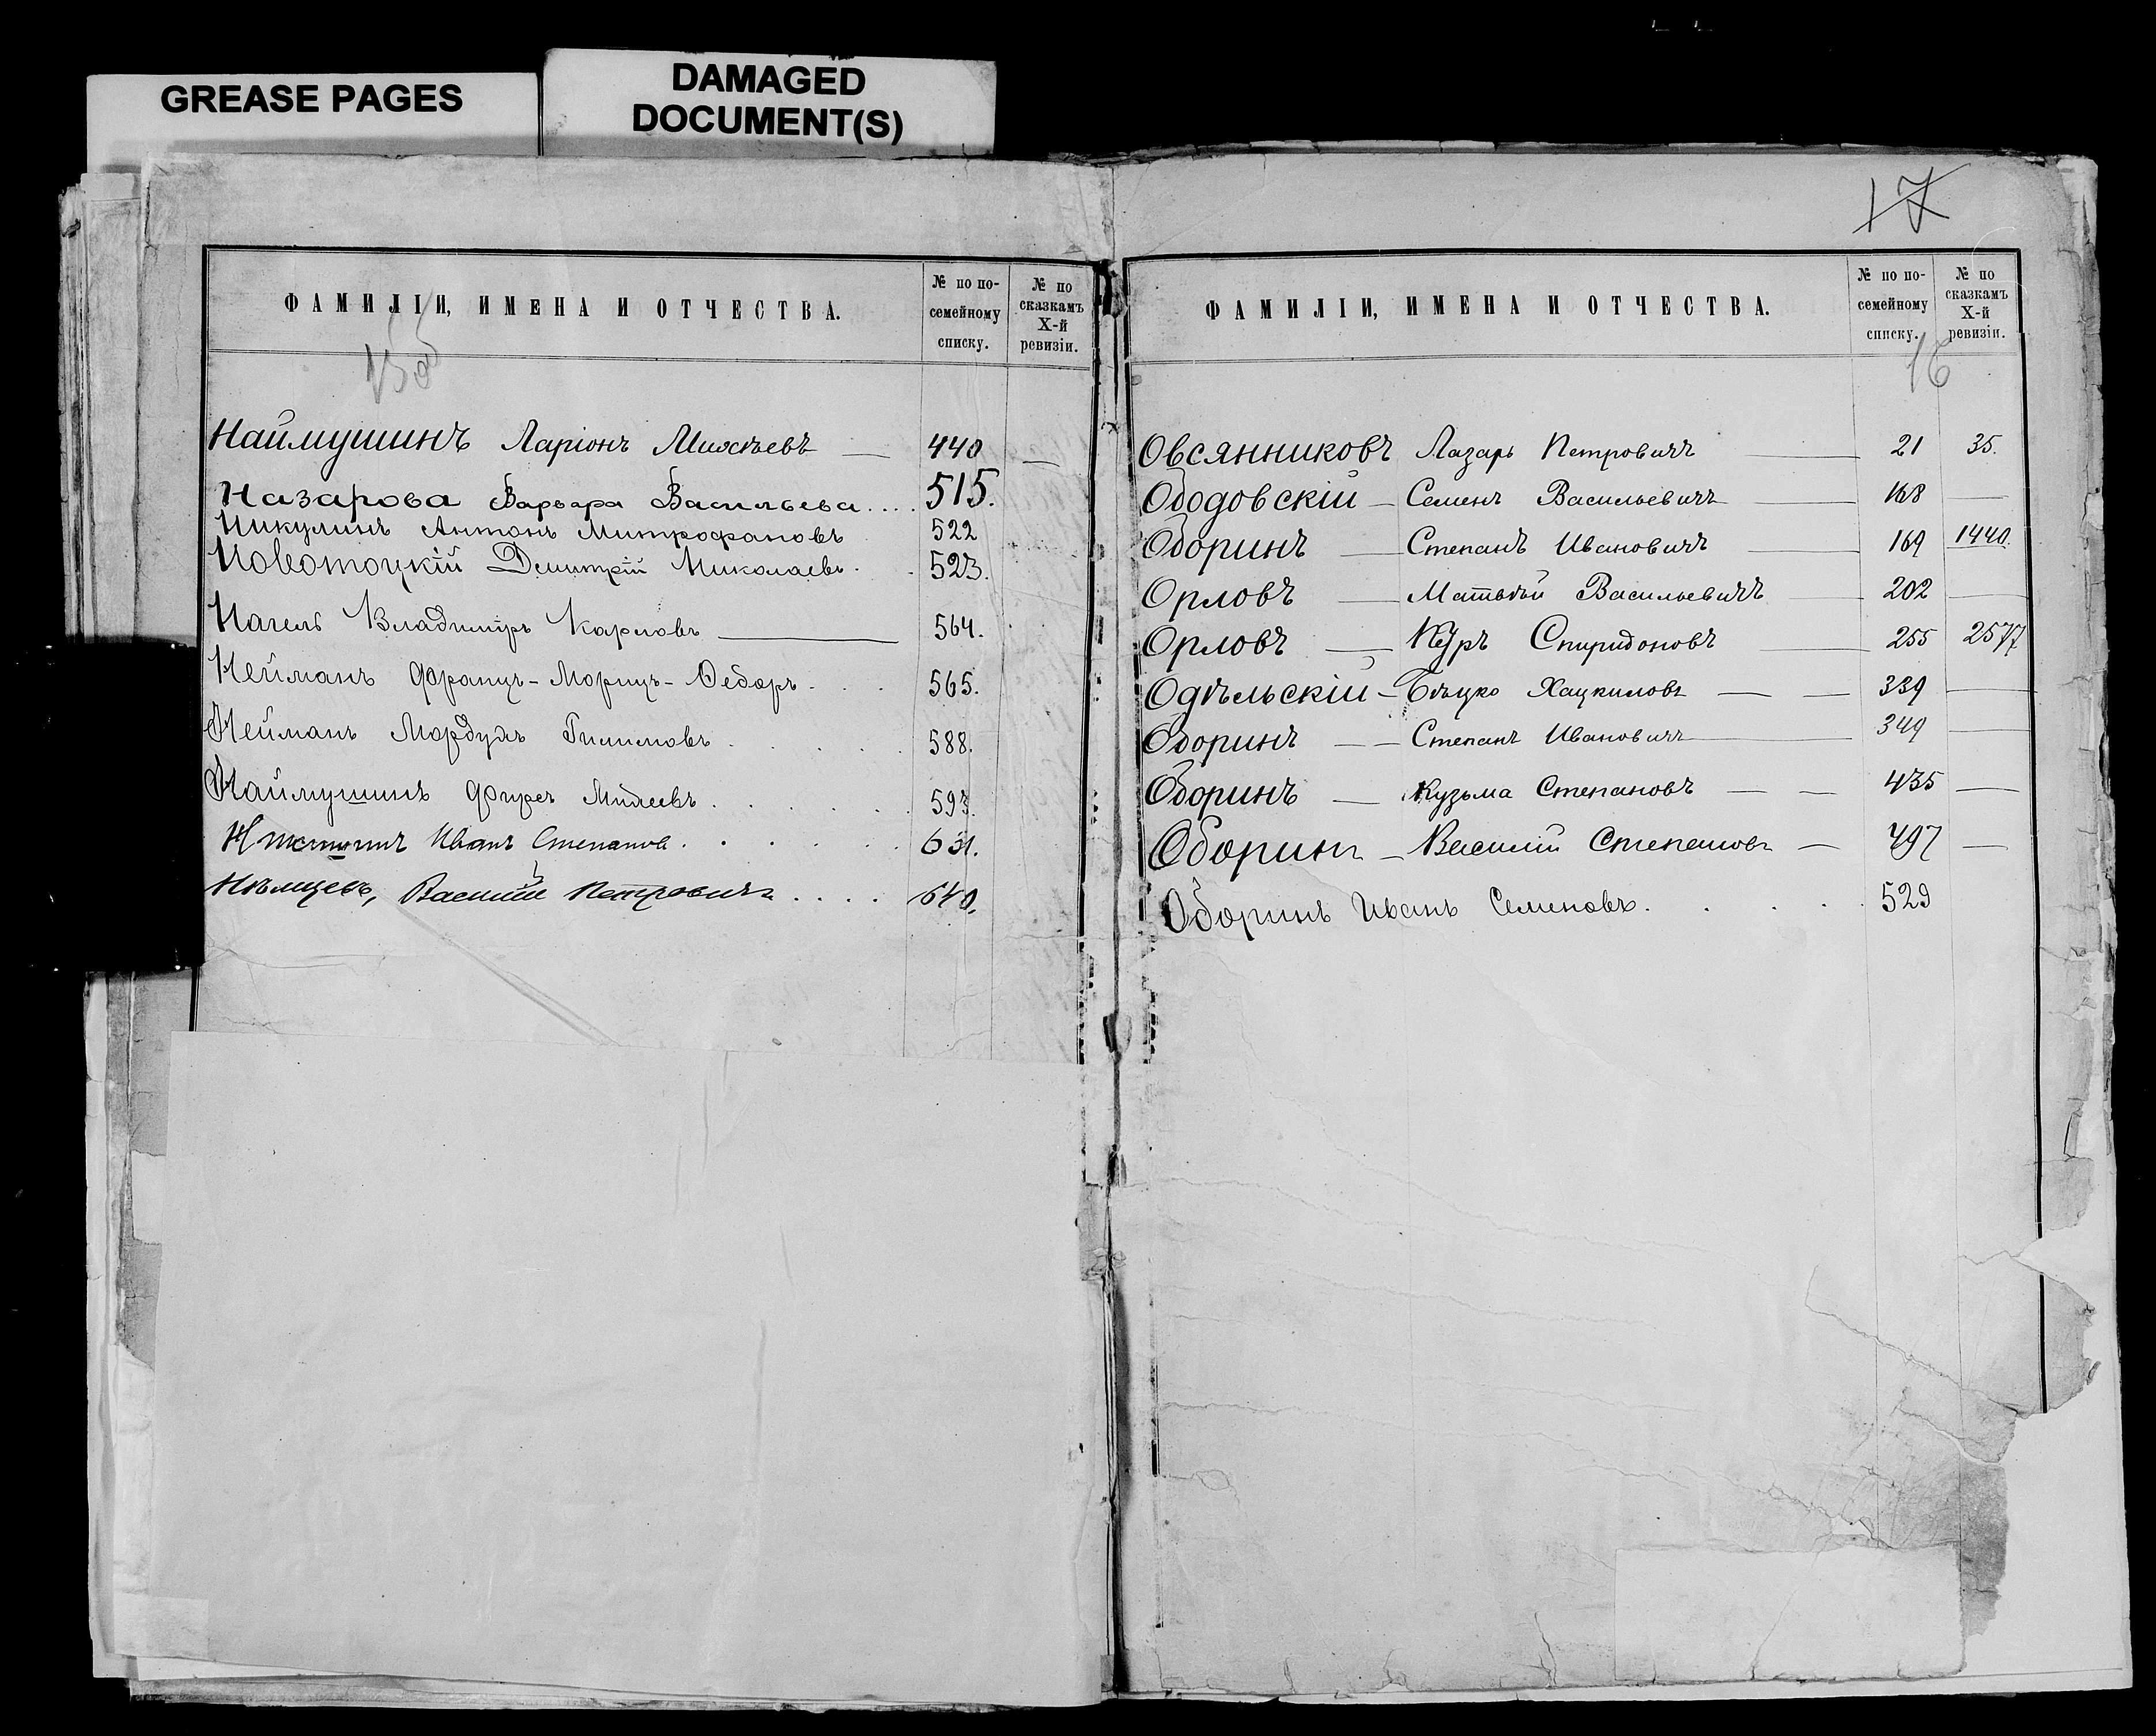 GREASE PAGES
DAMAGED
DOCUMENT(S)
ФАМИЛІИ, ИМЕНА И ОТЧЕСТВА.
№ по по-
семейному
списку.
№ по
сказкамъ
X-й
ревизіи.
Наймушинъ Ларіонъ — 440 —
Назарова Варвара Васильева.... 515.
Никулинъ Антонъ Митрофановъ 522
Новотоцкій Дмитрій Николаевъ. . 523.
Нагель Владимiръ Карловъ — 564.
Нейманъ Францъ-Морицъ-Ѳедоръ . . . 565.
Нейманъ Мордухъ . . . . 588.
Наймушинъ . . . . . 593.
Иванъ Степановъ . . . . . 631.
Нѣмцевъ, Василій Петровичъ . . . . 640.
17
ФАМИЛІИ, ИМЕНА И ОТЧЕСТВА.
№ по по-
семейному
списку.
№ по
сказкамъ
X-й
ревизіи.
16
Овсянниковъ Лазарь Петровичъ — 21 35.
Ободовскій — Семенъ Васильевичъ — 168 —
Оборинъ — Степанъ Ивановичъ — 169 1440.
Орловъ — Матвѣй Васильевичъ — 202 —
Орловъ — Киръ Спиридоновъ — 255 2577
Одѣльскій — Хацкиловъ — — 339 —
Оборинъ — — Степанъ Ивановичъ — 349 —
Оборинъ — Кузьма Степановъ — — 435 —
Оборинъ — Василій Степановъ — 497 —
Оборинъ Иванъ Семеновъ. . . . 529